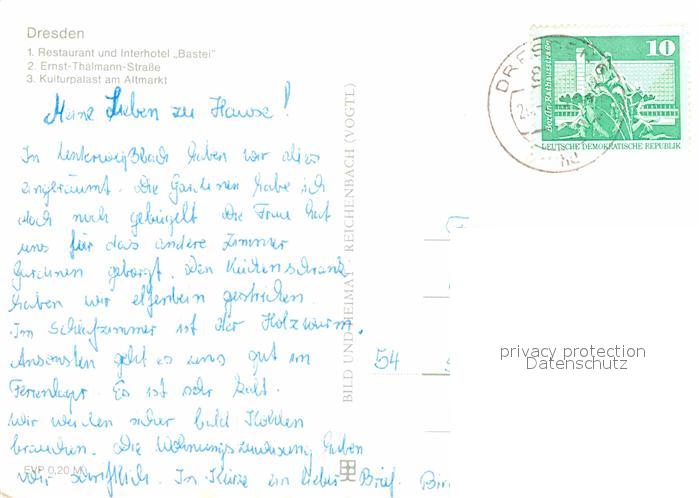 Dresden
1. Restaurant und Interhotel „Bastei"
2. Ernst-Thälmann-Straße
3. Kulturpalast am Altmarkt
Meine Lieben zu Hause!
In Unterweißbach haben wir alles
eingeräumt. Die Gardinen habe ich
auch noch gebügelt. Die Frau hat
uns für das andere Zimmer
Gardinen geborgt. Den Küchenschrank
haben wir elfenbein gestrichen.
Im Schlafzimmer ist der Holzwurm.
Ansonsten geht es uns gut im
Ferienlager. Es ist sehr kalt.
Wir werden sicher bald Kohlen
brauchen. Die Wohnungszuweisung haben
wir schriftlich. In Kürze ein lieber Brief. Bir
EVP 0,20 M
BILD UND HEIMAT REICHENBACH (VOGTL)
54
DRESDEN
Berlin-Rathausstraße
10
DEUTSCHE DEMOKRATISCHE REPUBLIK
privacy protection
Datenschutz